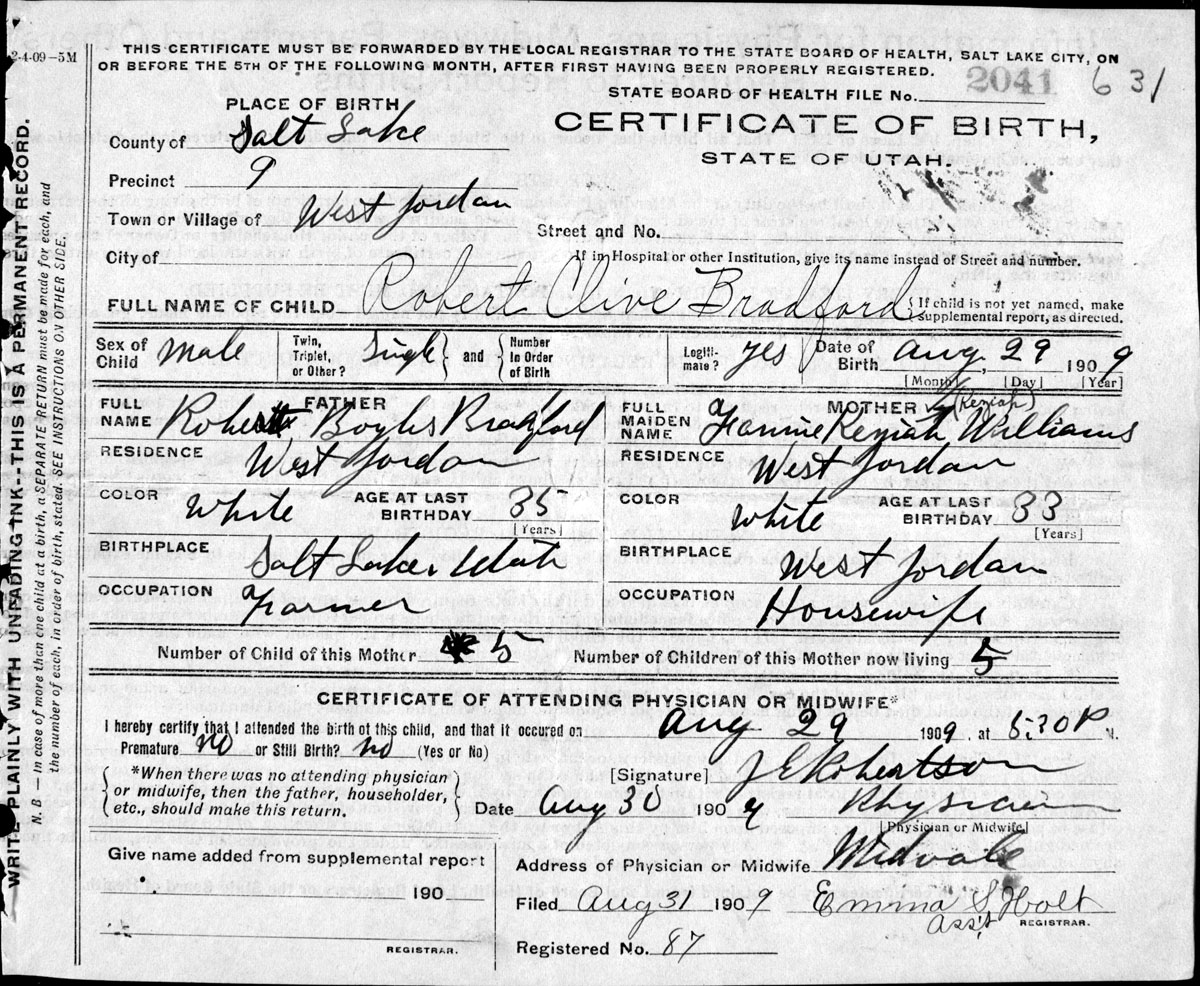 2-4-09-5M
THIS CERTIFICATE MUST BE FORWARDED BY THE LOCAL REGISTRAR TO THE STATE BOARD OF HEALTH, SALT LAKE CITY, ON
OR BEFORE THE 5TH OF THE FOLLOWING MONTH, AFTER FIRST HAVING BEEN PROPERLY REGISTERED.
STATE BOARD OF HEALTH FILE No. 2041 631
PLACE OF BIRTH
CERTIFICATE OF BIRTH,
STATE OF UTAH.
County of Salt Lake
Precinct 9
Town or Village of West Jordan
Street and No.
City of
If in Hospital or other Institution, give its name instead of Street and number.
FULL NAME OF CHILD Robert Clive Bradford { If child is not yet named, make supplemental report, as directed.
Sex of Child Male Twin, Triplet, or Other? Single } and { Number in Order of Birth Legiti-mate? yes Date of Birth Aug, 29 1909
[Month] [Day] [Year]
FATHER
FULL NAME Robert Boyles Bradford
RESIDENCE West Jordan
COLOR White AGE AT LAST BIRTHDAY 35
[Years]
BIRTHPLACE Salt Lake, Utah
OCCUPATION Farmer
MOTHER (Keziah)
FULL MAIDEN NAME Fannie Keziah Williams
RESIDENCE West Jordan
COLOR White AGE AT LAST BIRTHDAY 33
[Years]
BIRTHPLACE West Jordan
OCCUPATION Housewife
Number of Child of this Mother 5 Number of Children of this Mother now living 5
CERTIFICATE OF ATTENDING PHYSICIAN OR MIDWIFE*
I hereby certify that I attended the birth of this child, and that it occured on Aug 29 1909, at 5:30 P M.
Premature no or Still Birth? no (Yes or No)
*When there was no attending physician
or midwife, then the father, householder,
etc., should make this return.
[Signature] J E Robertson
Date Aug 30 1909 Physician
[Physician or Midwife]
Give name added from supplemental report
190
REGISTRAR.
Address of Physician or Midwife Midvale
Filed Aug 31 1909 Emma S Holt
Ass't REGISTRAR.
Registered No. 87
WRITE PLAINLY WITH UNFADING INK--THIS IS A PERMANENT RECORD.
N. B — In case of more than one child at a birth, a SEPARATE RETURN must be made for each, and
the number of each, in order of birth, stated. SEE INSTRUCTIONS ON OTHER SIDE.